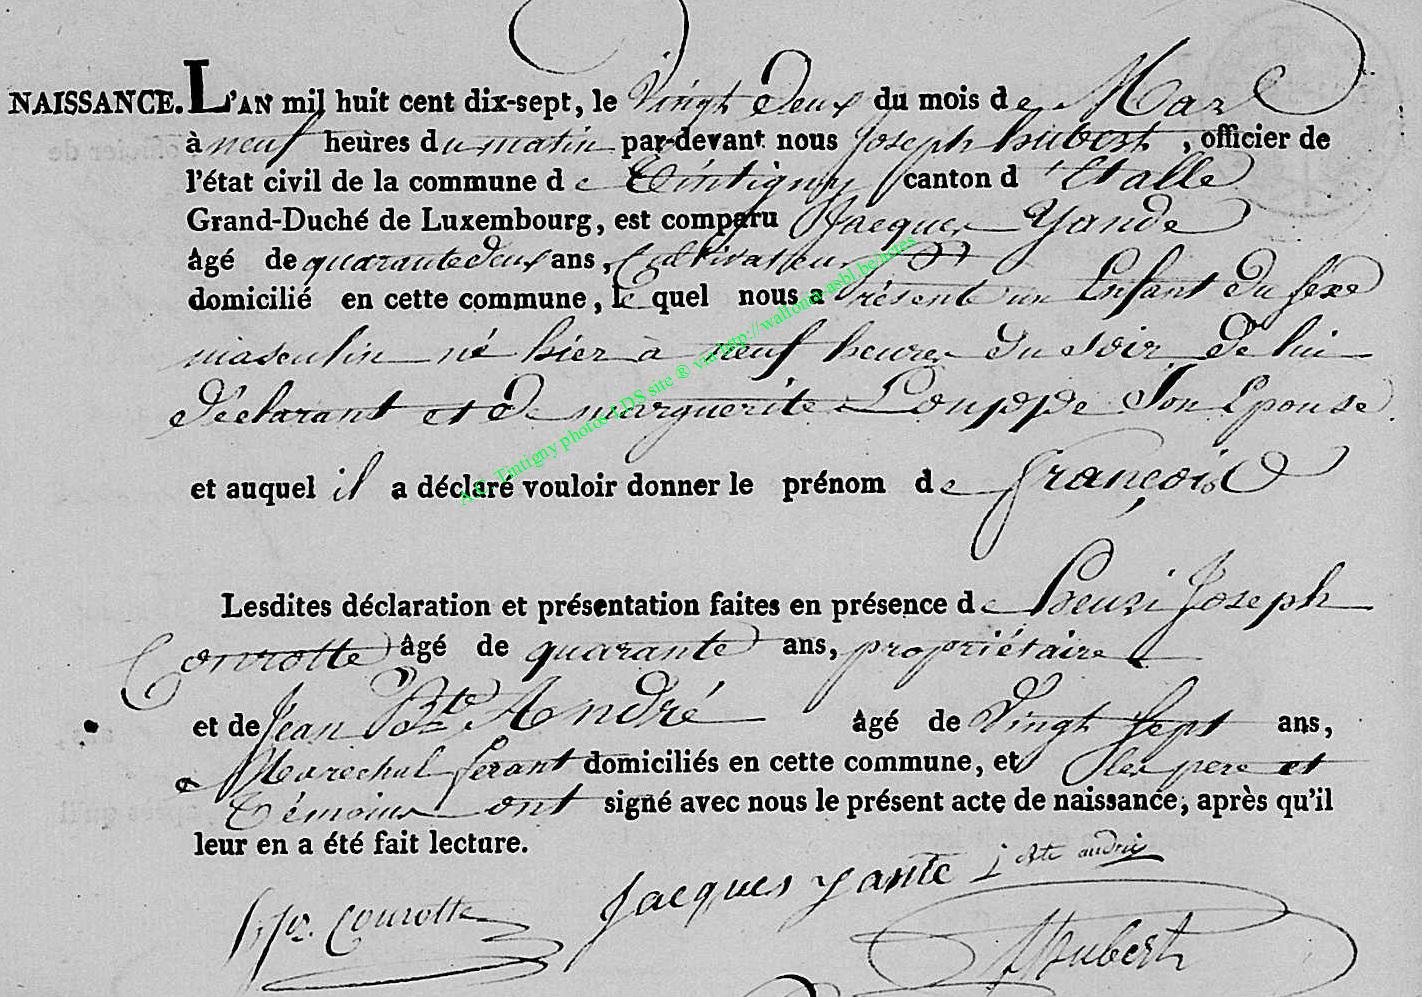 NAISSANCE. L'AN mil huit cent dix-sept, le Vingt deux du mois de Mars
à neuf heures du matin par-devant nous Joseph hubert, officier de
l'état civil de la commune de Tintigny canton d'Etalle
Grand-Duché de Luxembourg, est comparu Jacques Yande
âgé de quarante deux ans, Cultivateur
domicilié en cette commune, le quel nous a Présenté un Enfant du sexe
masculin né hier à neuf heures du soir de lui
déclarant et de marguerite Louppe Son Epouse
et auquel il a déclaré vouloir donner le prénom de françois
Lesdites déclaration et présentation faites en présence de henri Joseph
Courotte âgé de quarante ans, propriétaire
et de Jean Bte André âgé de Vingt sept ans,
Marechal ferant domiciliés en cette commune, et les pere et
Témoins ont signé avec nous le présent acte de naissance, après qu'il
leur en a été fait lecture.
Jacques yante j bte andrie
h. j. courotte
Hubert
A.C. Tintigny photos LDS site ® via http://wallonia-asbl.be/actes